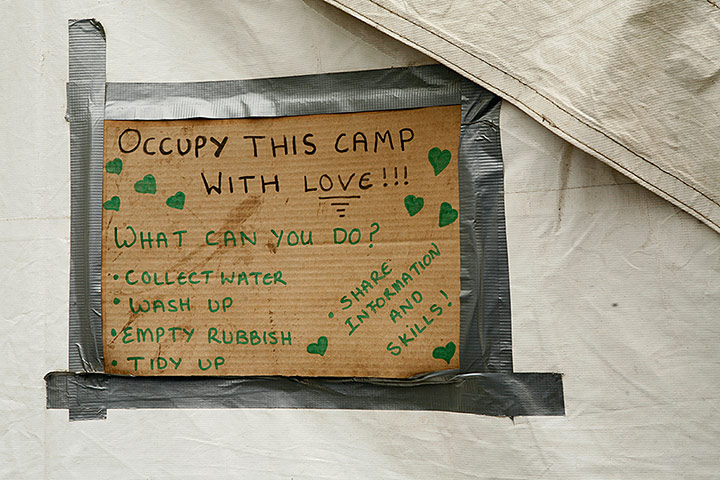 OCCUPY THIS CAMP
WITH LOVE!!!
WHAT CAN YOU DO?
• COLLECT WATER
• WASH UP
• EMPTY RUBBISH
• TIDY UP
• SHARE
INFORMATION
AND
SKILLS!